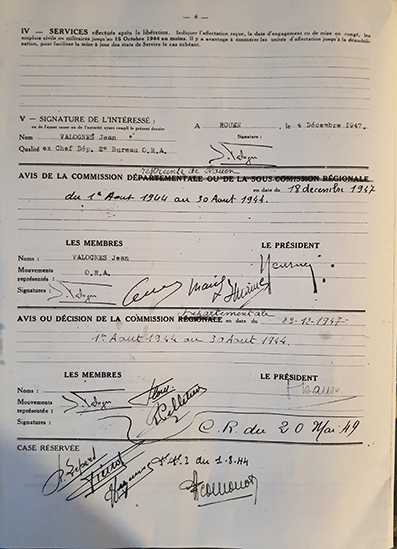 — 4 —
IV — SERVICES effectués après la libération. Indiquer l'affectation reçue, la date d'engagement ou de mise en congé, les
emplois civils ou militaires jusqu'au 15 Octobre 1944 au moins. Il y a avantage à énumérer les unités d'affectation jusqu'à la démobili-
sation, pour faciliter la mise à jour des états de Service le cas échéant.
V — SIGNATURE DE L'INTÉRESSÉ :
ou de l'ayant cause ou de l'autorité ayant rempli le présent dossier
A ROUEN , le 4 Décembre 1947.
Nom VALOGNES Jean
Signature :
Qualité ex Chef Dép. 2e Bureau O.R.A.
restreinte de Rouen
AVIS DE LA COMMISSION DÉPARTEMENTALE OU DE LA SOUS-COMMISSION RÉGIONALE
en date du 18 decembre 1947
du 1er Aout 1944 au 30 Aout 1944.
LES MEMBRES
LE PRÉSIDENT
Noms : VALOGNES Jean
Mouvements représentés : O.R.A.
Signatures :
Départementale
AVIS OU DÉCISION DE LA COMMISSION RÉGIONALE
en date du 23-12-1947
1er Aout 1944 au 30 Aout 1944.
LES MEMBRES
LE PRÉSIDENT
Noms :
Mouvements représentés :
Signatures :
C.R. du 20 Mai 49
CASE RÉSERVÉE
du 1.8.44